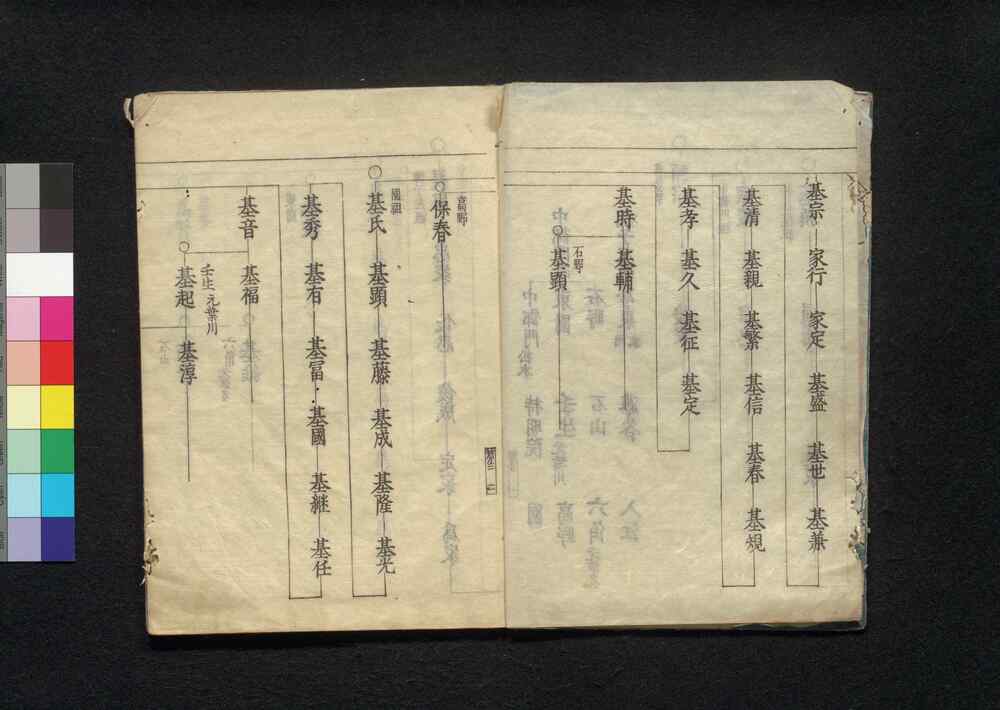 基宗 家行 家定 基盛 基世 基兼
基清 基親 基繁 基信 基春 基規
基孝 基久 基征 基定
基時 基輔
石野
基顕
高野
保春
園祖
基氏 基顕 基藤 基成 基隆 基光
基秀 基有 基冨 基國 基継 基任
基音 基福
壬生 元葉川
基起 基淳